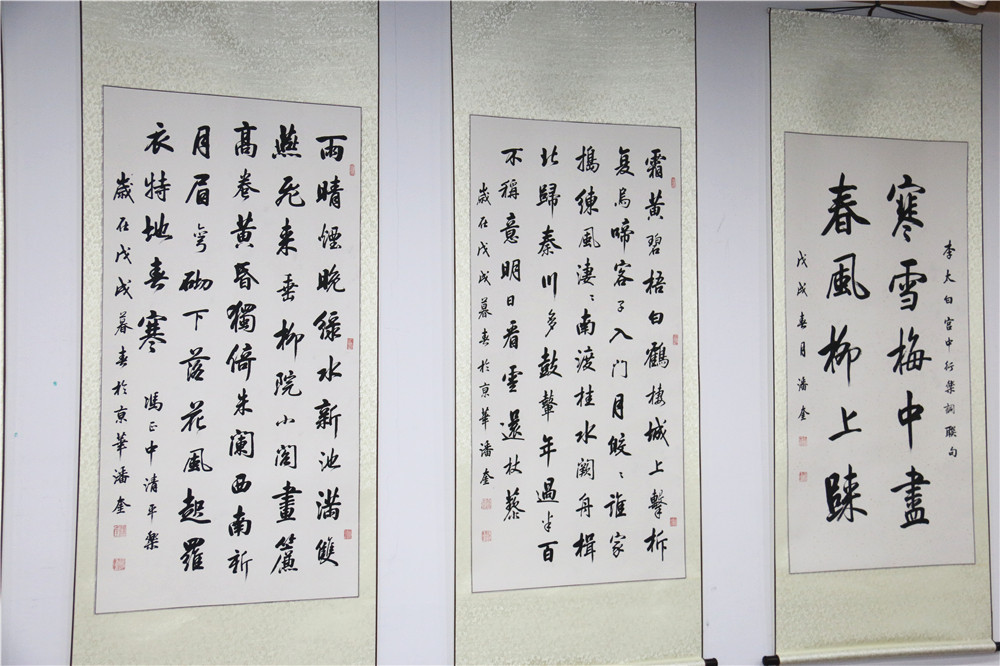 雨晴煙晚綠水新池滿雙
燕飛來垂柳院小閣畫簾
高卷黃昏獨倚朱闌西南新
月眉彎砌下落花風起羅
衣特地春寒 馮正中清平樂
歲在戊戌暮春於京華潘奎
霜黃碧梧白鶴棲城上擊柝
复烏啼客子入門月皎々誰家
搗練風淒々南渡桂水闕舟楫
北歸秦川多鼓鼙年過半百
不稱意明日看雲還杖藜
歲在戊戌暮春於京華潘奎
李太白宮中行樂詞聯句
寒雪梅中盡
春風柳上歸
戊戌春月潘奎